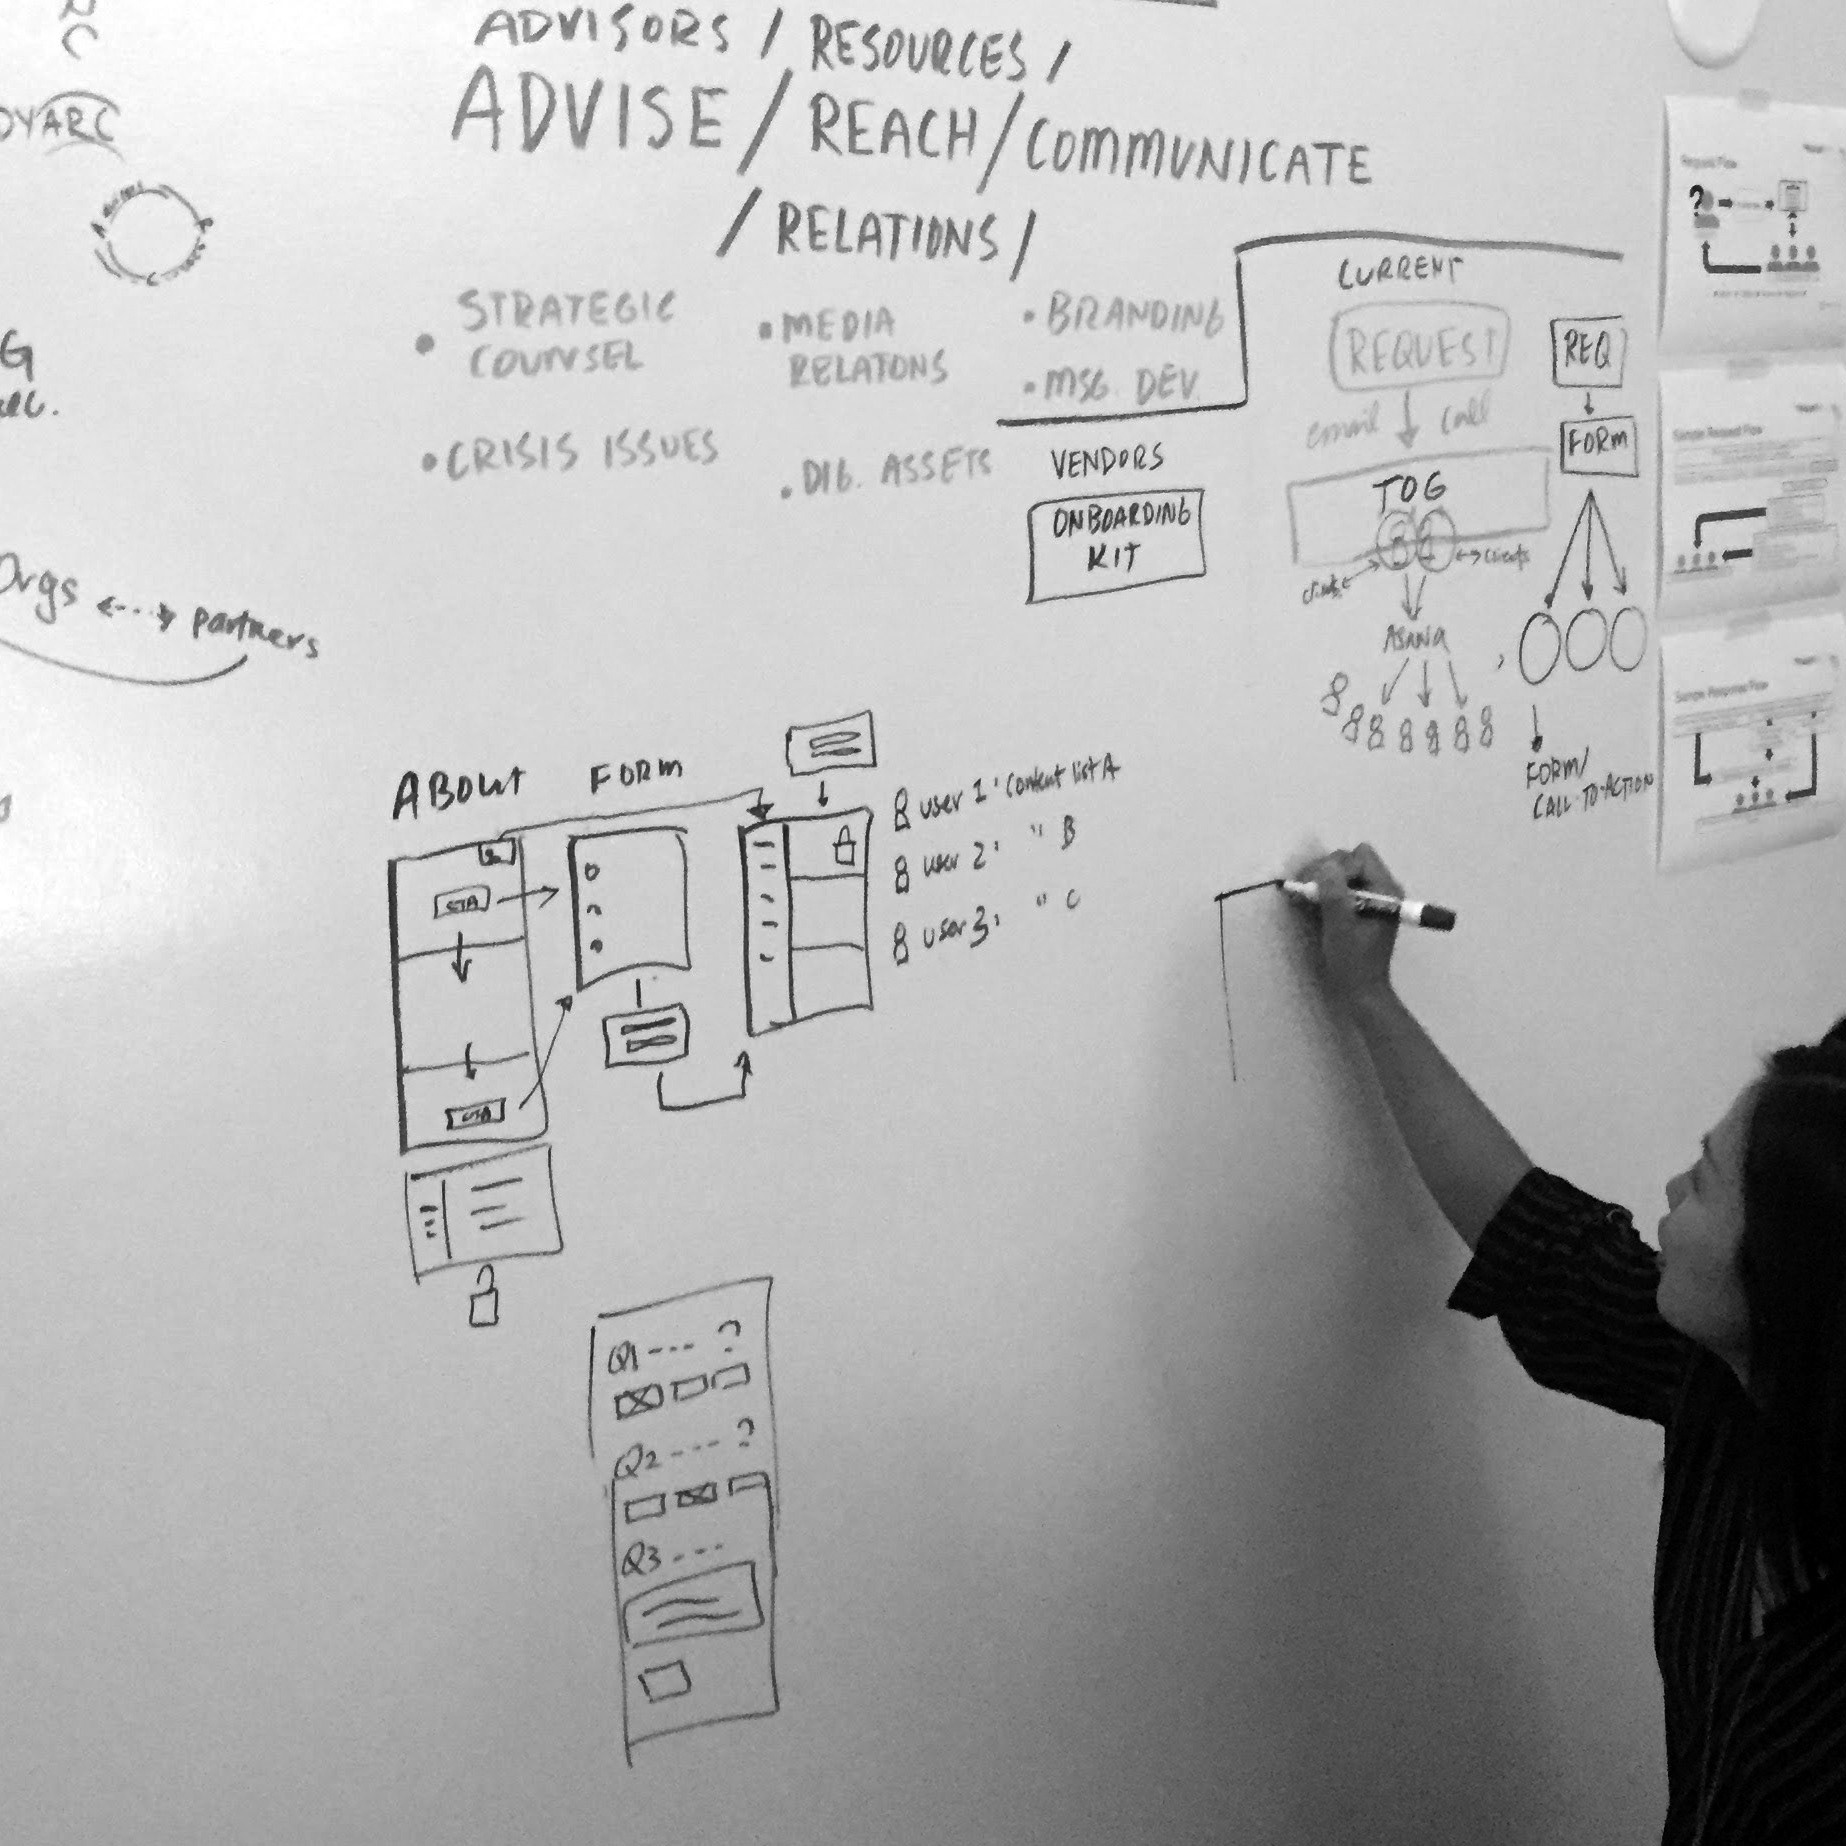 ADVISORS / RESOURCES /
ADVISE / REACH / COMMUNICATE
/ RELATIONS /
• STRATEGIC
COUNSEL
• CRISIS ISSUES
• MEDIA
RELATONS
• DIG. ASSETS
• BRANDING
• MSG. DEV.
VENDORS
ONBOARDING
KIT
CURRENT
REQUEST
email call
TOG
clients
ASANA
REQ
FORM
FORM/
CALL-TO-ACTION
Request Flow
Sample Request Flow
Sample Response Flow
G
Orgs partners
ABOUT
CTA
CTA
FORM
user 1: Content list A
user 2: " B
user 3: " C
Q1 --- ?
Q2 ---- ?
Q3 ---